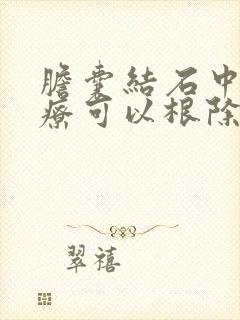 膽囊結石中
療可以根除
翠禧